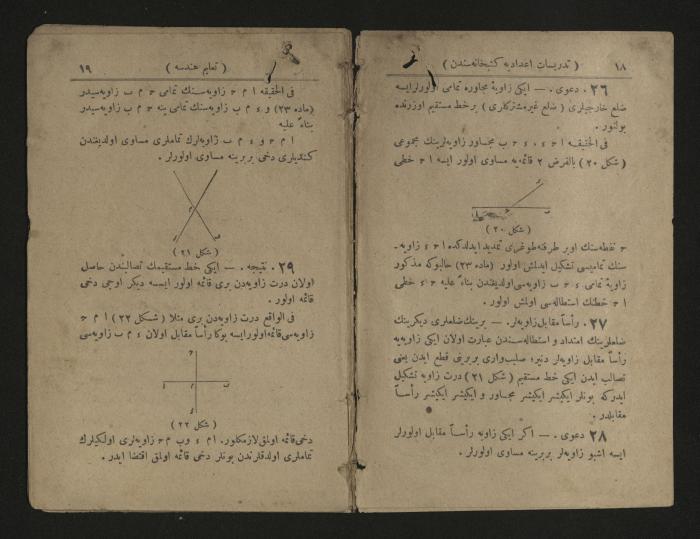 ١٨ ( تدريسات اعداديه كتبخانه‌سندن )
٢٦ . دعوى . — ايكى زاويۀ مجاوره تمامى اولورلرايسه
ضلع خارجيلرى ( ضلع غيرمشتركلرى ) برخط مستقيم اوزرنده
بولنور .
فى الحقيقه ا ح ء ، ء ح ب مجاور زاويه‌لرينك مجموعى
( شكل ٢٠ ) بالفرض ٢ قائمه‌يه مساوى اولور ايسه ا ح خطى
( شكل ٢٠ )
ح نقطه‌سنك اوبر طرفنه‌طوغرى تمديد ايدلدكده ا ح ء زاويه‌ـ
سنك تماميسى تشكيل ايدلمش اولور ( ماده ٢٣ ) حالبوكه مذكور
زاويۀ تمامى ء ح ب زاويه‌سى‌اولديغندن بناءً عليه ح ء خطى
ا ح خطنك استطاله‌سى اولمش اولور .
٢٧ . رأساً مقابل‌زاويه‌لر . — برينك‌ضلعلرى ديكرينك
ضلعلرينك امتداد و استطاله‌سندن عبارت اولان ايكى‌زاويه‌يه
رأساً مقابل زاويه‌لر دنير؛ صليب‌وارى بربرنى قطع ايدن يعنى
تصالب ايدن ايكى خط مستقيم ( شكل ٢١ ) درت زاويه تشكيل
ايدركه بونلر ايكيشر ايكيشر مجاور و ايكيشر ايكيشر رأساً
مقابلدر .
٢٨ دعوى . — اكر ايكى زاويه رأساً مقابل اولورلر
ايسه اشبو زاويه‌لر بربرينه مساوى اولورلر .
( تعليم هندسه ) ١٩
فى الحقيقه ا م ح زاويه‌سنك تمامى ح م ب زاويه‌سيدر
( ماده ٢٣ ) و ء م ب زاويه‌سنك تمامى ينه ح م ب زاويه‌سيدر
بناءً عليه
ا م ح و ء م ب زاويه‌لرك تماملرى مساوى اولديغندن
كنديلرى دخى بربرينه مساوى اولورلر .
( شكل ٢١ )
٢٩ . نتيجه . — ايكى خط مستقيمك تصالبندن حاصل
اولان درت زاويه‌دن برى قائمه اولور ايسه ديكر اوچى دخى
قائمه اولور .
فى الواقع درت زاويه‌دن برى مثلا ( شكل ٢٢ ) ا م ح
زاويه‌سى‌قائمه‌اولورايسه بوكا رأساً مقابل اولان ء م ب زاويه‌سى
( شكل ٢٢ )
دخى‌قائمه اولمق‌لازمكلور. ا م ء و ب م ح زاويه‌لرى اولكيلرك
تماملرى اولدقلرندن بونلر دخى قائمه اولمق اقتضا ايدر .